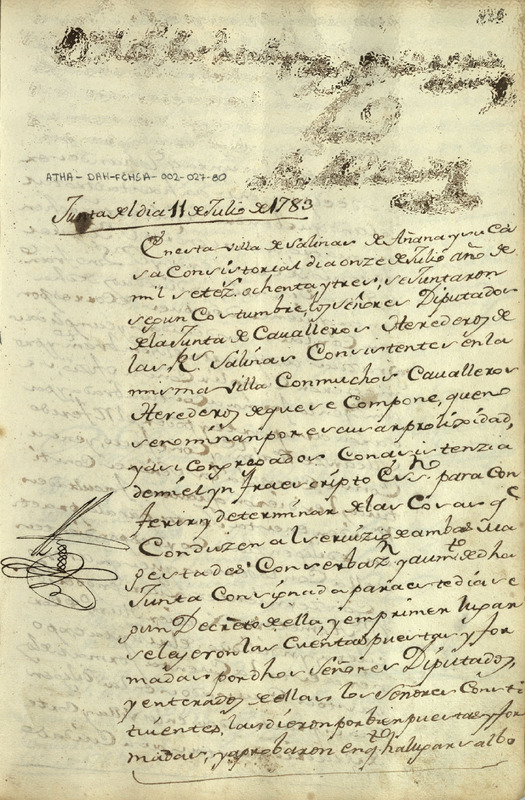 ATHA-DAH-FCHSA-002-027-80
Junta del dia 11 de Julio de 1783
En esta villa de Salinas de Añana y su Ca
sa Consistorial dia onze de Julio año de
mil setez.s ochenta y tres, se Juntaron
segun Costumbre, los señores Diputados
de la Junta de Cavalleros Herederos de
las R.s Salinas Consistentes en la
misma villa Con muchos Cavalleros
Herederos de que se Compone, que no
se nominan por escusar prolixidad,
y asi Congregados Con asistenzia
de mi el ynfraescripto Ess.no para Con
ferir y determinar de las Cosas q.e
Conduzen al servizio de ambas Ma
gestades Conserbaz.n y aum.to de dha
Junta Consignada para este dia se
gun Decreto de ella, y en primer lugar
se leyeron las Cuentas puestas y for
madas por dhos Señores Diputados,
y enterados de ellas los Señores Consti
tuientes, las dieron por bien puestas y for
madas, y aprobaron en q.to ha lugar salbo